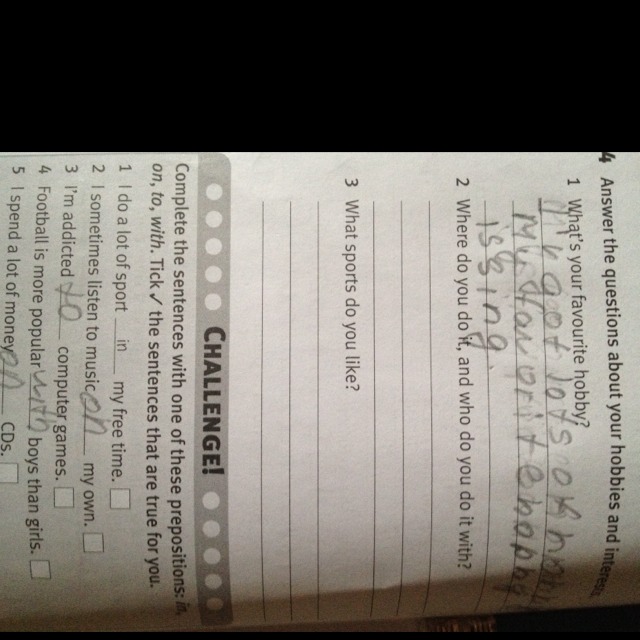 4 Answer the questions about your hobbies and interests
1 What's your favourite hobby?
got lots
My favorite hobby
is sing.
2 Where do you do it, and who do you do it with?
3 What sports do you like?
CHALLENGE!
Complete the sentences with one of these prepositions: in,
on, to, with. Tick ✓ the sentences that are true for you.
1 I do a lot of sport in my free time.
2 I sometimes listen to music on my own.
3 I'm addicted to computer games.
4 Football is more popular with boys than girls.
5 I spend a lot of money on CDs.